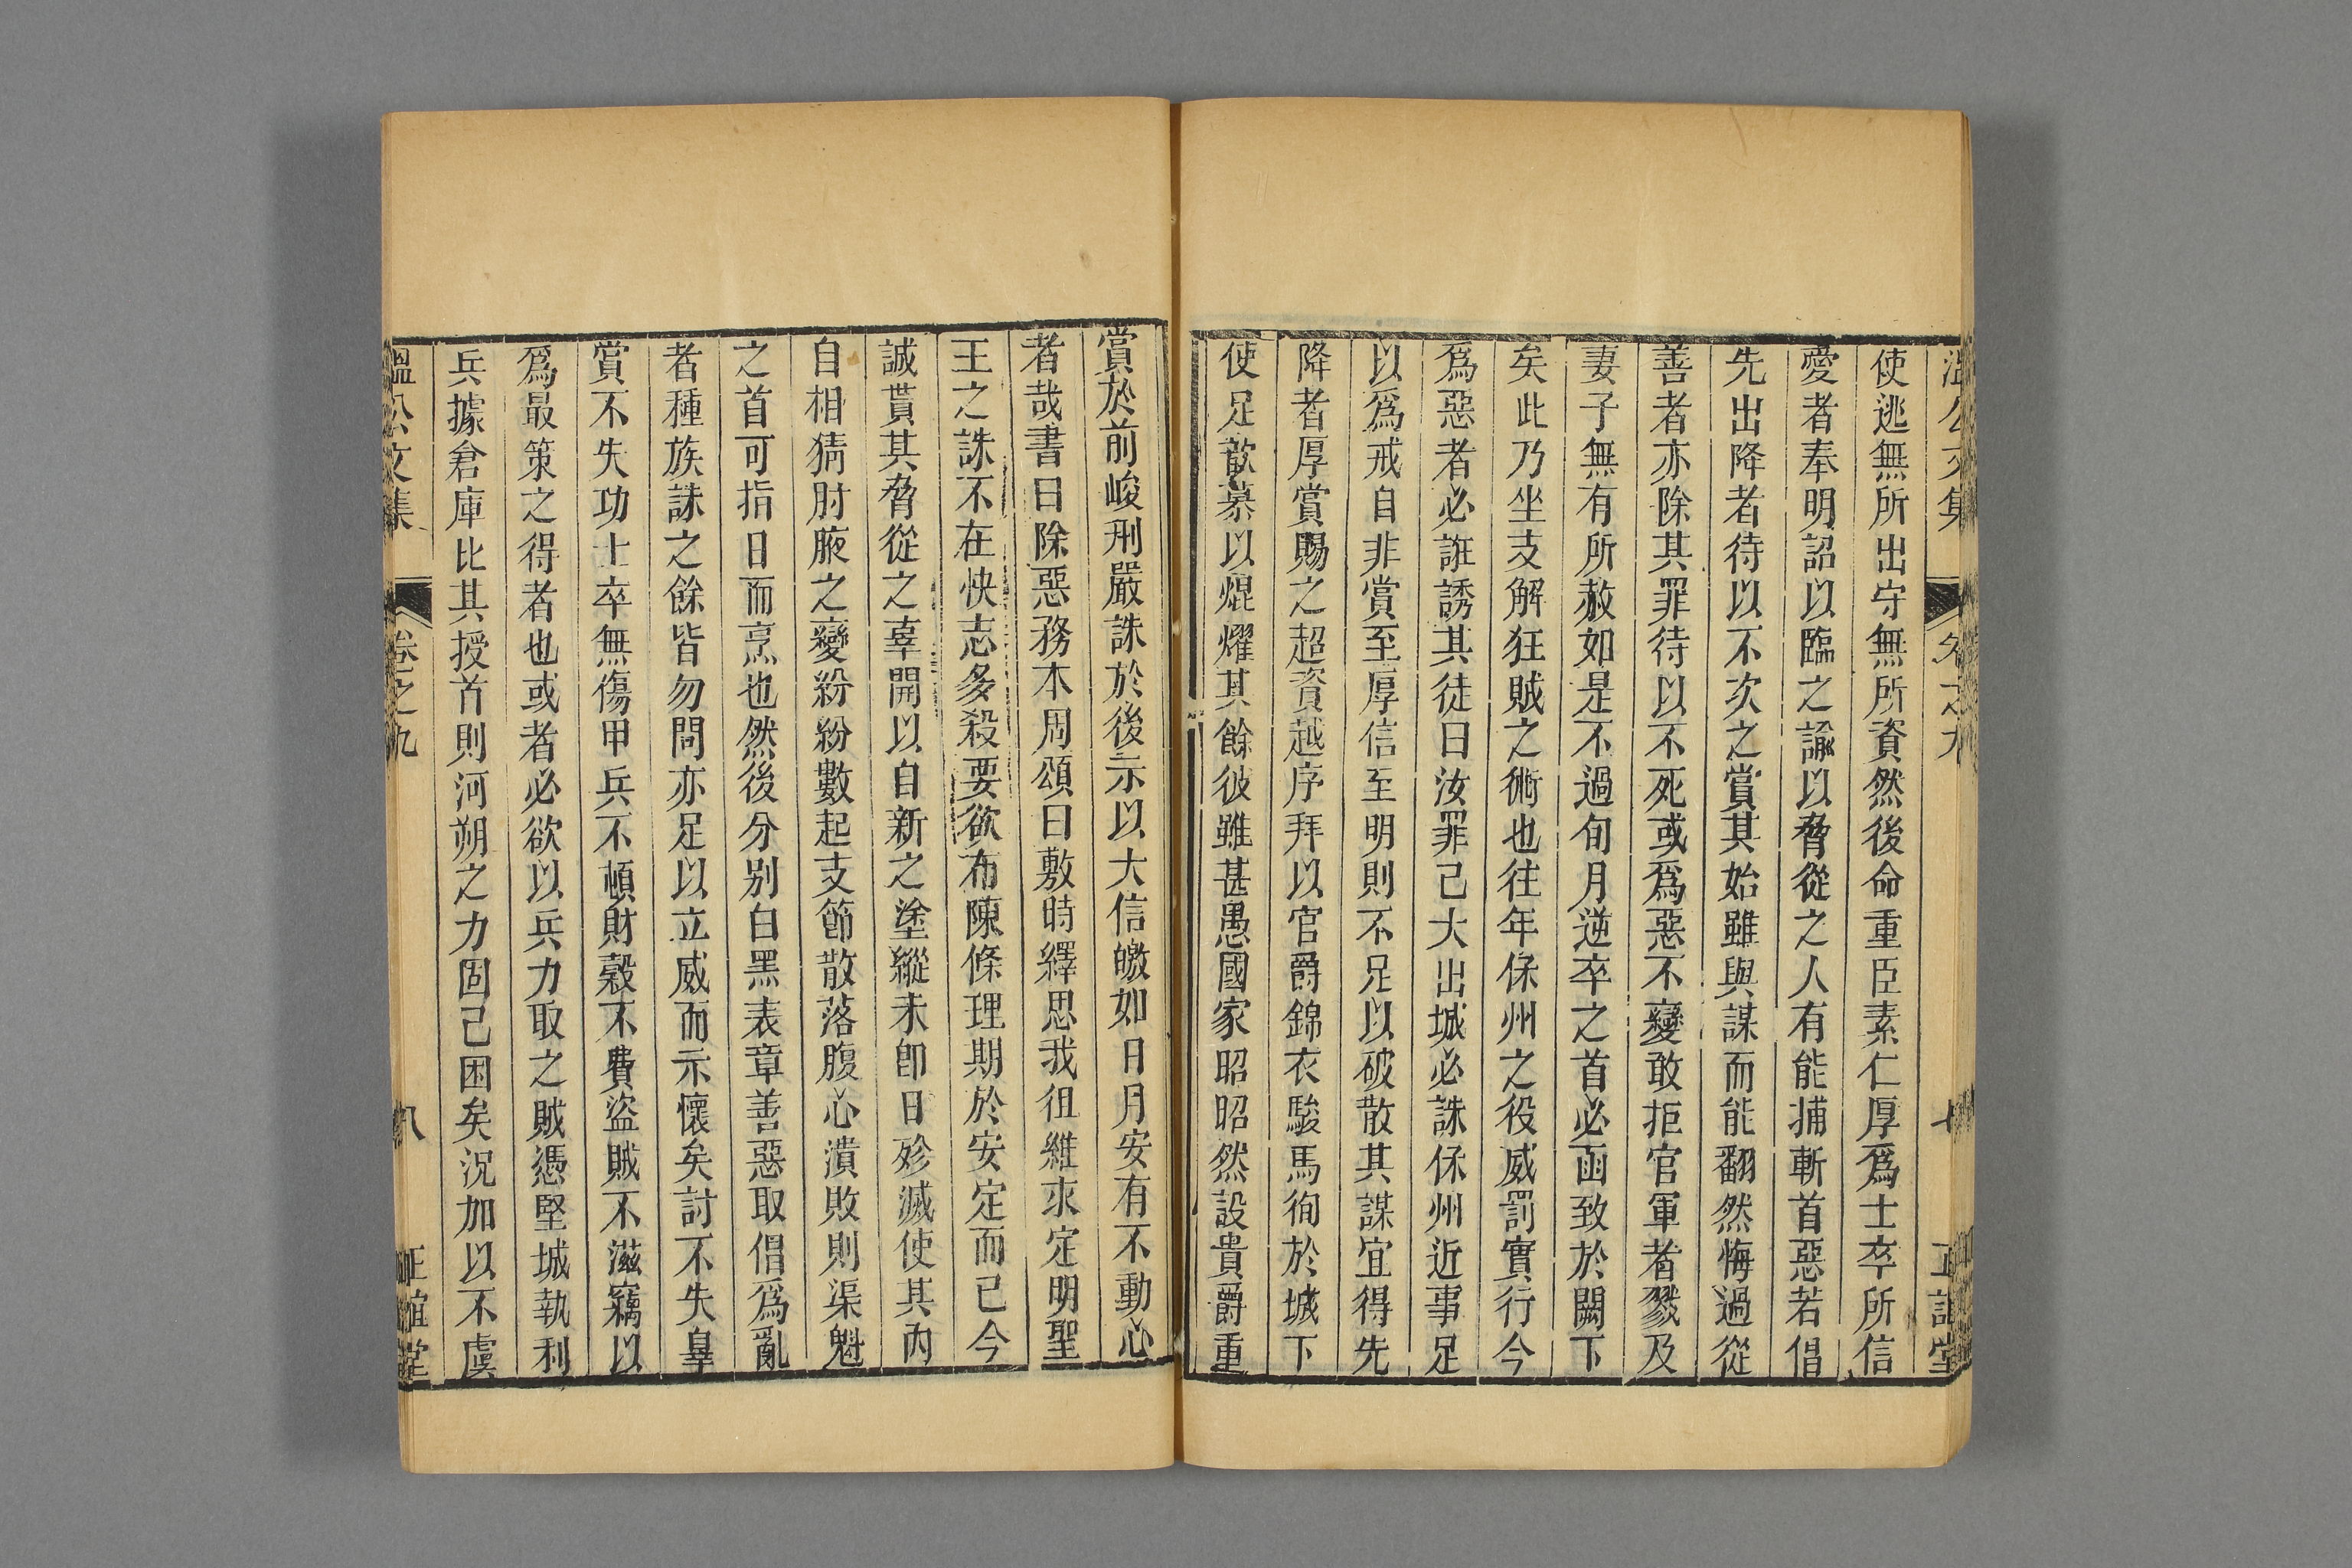 溫公文集 卷之九 七 正誼堂
使逃無所出守無所資然後命重臣素仁厚爲士卒所信
愛者奉明詔以臨之諭以脅從之人有能捕斬首惡若倡
先出降者待以不次之賞其始雖與謀而能翻然悔過從
善者亦除其罪待以不死或爲惡不變敢拒官軍者戮及
妻子無有所赦如是不過旬月逆卒之首必函致於闕下
矣此乃坐支解狂賊之術也往年保州之役威罰實行今
爲惡者必誑誘其徒曰汝罪已大出城必誅保州近事足
以爲戒自非賞至厚信至明則不足以破散其謀宜得先
降者厚賞賜之超資越序拜以官爵錦衣駿馬徇於城下
使足歆慕以焜燿其餘彼雖甚愚國家昭昭然設貴爵重
賞於前峻刑嚴誅於後示以大信皦如日月安有不動心
者哉書曰除惡務本周頌曰敷時繹思我徂維求定明聖
王之誅不在快志多殺要欲布陳條理期於安定而已今
誠貰其脅從之辜開以自新之塗縱未卽日殄滅使其內
自相猜肘腋之變紛紛數起支節散落腹心潰敗則渠魁
之首可指日而烹也然後分别白黑表章善惡取倡爲亂
者種族誅之餘皆勿問亦足以立威而示懷矣討不失辠
賞不失功士卒無傷甲兵不頓財穀不費盜賊不滋竊以
爲最策之得者也或者必欲以兵力取之賊憑堅城執利
兵據倉庫比其授首則河朔之力固已困矣況加以不虞
溫公文集 卷之九 八 正誼堂